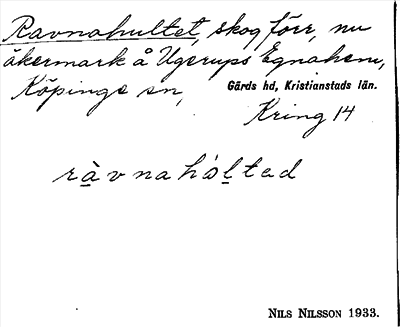 Ravnahultet, skog förr, nu
åkermark å Ugerups Egnahem,
Köpinge sn, Gärds hd, Kristianstads län.
Kring 14
ràvnahóltad
NILS NILSSON 1933.